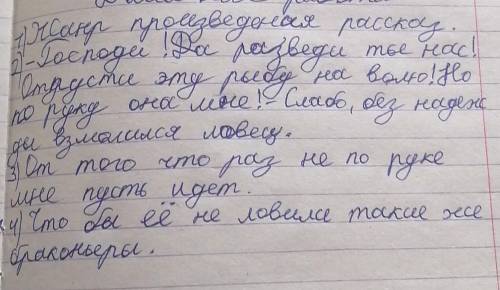 1) Жанр произведения рассказ.
2) - Господи! Да разведи тье нас!
Отпусти эту рыбу на волю! Но
по руку она мне! - Слабо, без надеж
ды взмолился ловец.
3) От того что раз не по руке
мне пусть идет.
4) Что бы её не ловили такие же
браконьеры.